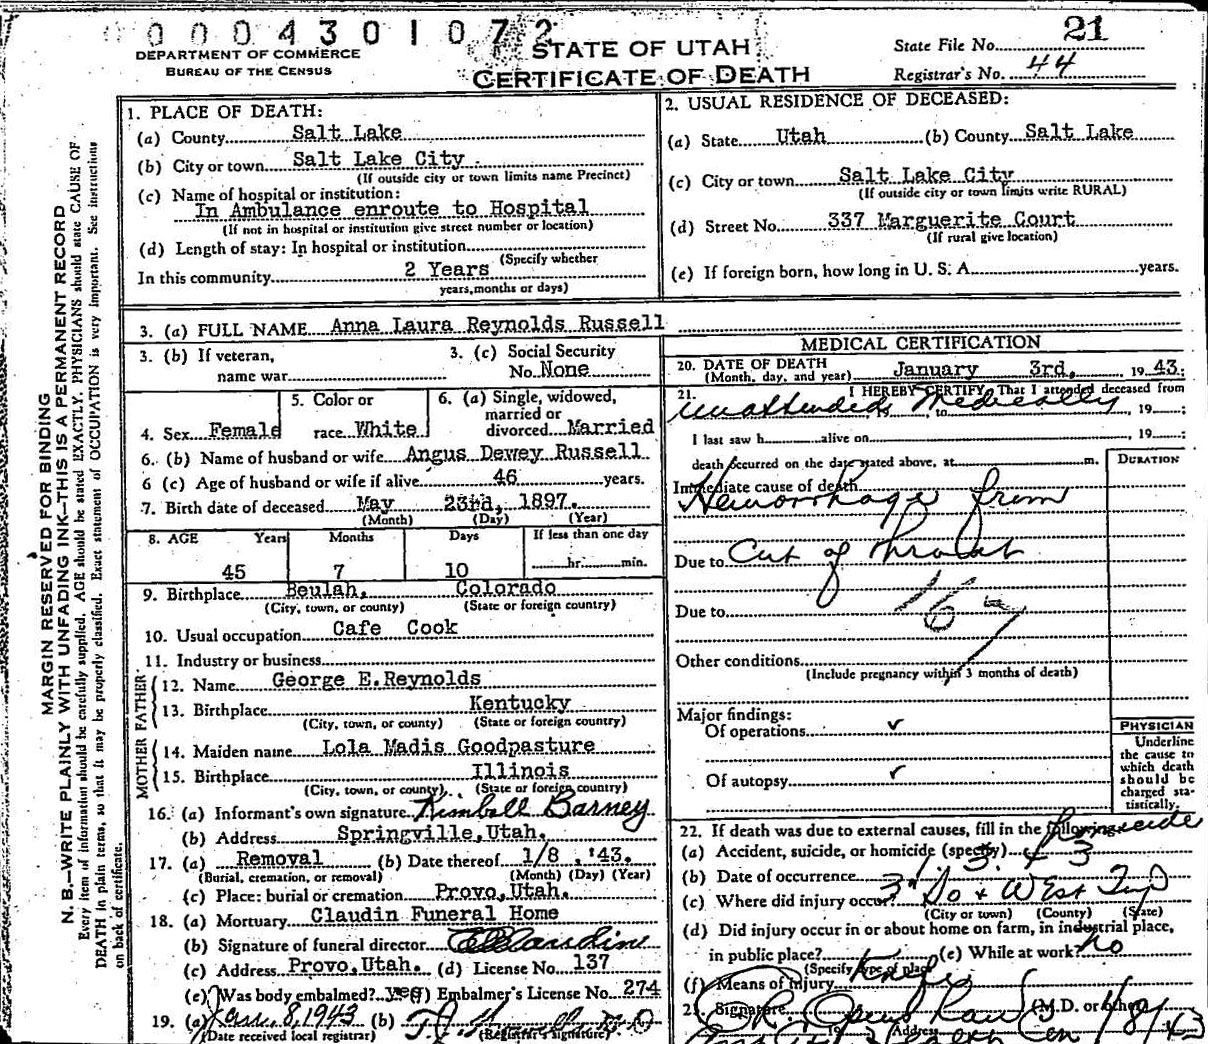 0 0 0 4 3 0 1 0 7 2
DEPARTMENT OF COMMERCE
BUREAU OF THE CENSUS
STATE OF UTAH
CERTIFICATE OF DEATH
State File No. 21
Registrar's No. 44
MARGIN RESERVED FOR BINDING
N. B.—WRITE PLAINLY WITH UNFADING INK—THIS IS A PERMANENT RECORD
Every item of information should be carefully supplied. AGE should be stated EXACTLY. PHYSICIANS should state CAUSE OF
DEATH in plain terms, so that it may be properly classified. Exact statement of OCCUPATION is very important. See instructions
on back of certificate.
1. PLACE OF DEATH:
(a) County Salt Lake
(b) City or town Salt Lake City .
(If outside city or town limits name Precinct)
(c) Name of hospital or institution:
In Ambulance enroute to Hospital
(If not in hospital or institution give street number or location)
(d) Length of stay: In hospital or institution
(Specify whether
In this community 2 Years
years, months or days)
2. USUAL RESIDENCE OF DECEASED:
(a) State Utah (b) County Salt Lake
(c) City or town Salt Lake City
(If outside city or town limits write RURAL)
(d) Street No. 337 Marguerite Court
(If rural give location)
(e) If foreign born, how long in U. S. A. years.
3. (a) FULL NAME Anna Laura Reynolds Russell
3. (b) If veteran,
name war
3. (c) Social Security
No. None
4. Sex Female
5. Color or
race White
6. (a) Single, widowed,
married or
divorced Married
6. (b) Name of husband or wife Angus Dewey Russell
6 (c) Age of husband or wife if alive 46 years.
7. Birth date of deceased May 23rd, 1897.
(Month) (Day) (Year)
8. AGE Years Months Days If less than one day
45 7 10 hr. min.
9. Birthplace Beulah, Colorado
(City, town, or county) (State or foreign country)
10. Usual occupation Cafe Cook
11. Industry or business
FATHER
12. Name George E. Reynolds
13. Birthplace Kentucky
(City, town, or county) (State or foreign country)
MOTHER
14. Maiden name Lola Madis Goodpasture
15. Birthplace Illinois
(City, town, or county) (State or foreign country)
16. (a) Informant's own signature Kimball Barney
(b) Address Springville, Utah.
17. (a) Removal (b) Date thereof 1/8 .'43.
(Burial, cremation, or removal) (Month) (Day) (Year)
(c) Place: burial or cremation Provo, Utah.
18. (a) Mortuary Claudin Funeral Home
(b) Signature of funeral director
(c) Address Provo, Utah. (d) License No. 137
(e) Was body embalmed? yes (f) Embalmer's License No. 274
19. (a) Jan. 8, 1943 (b)
(Date received local registrar) (Registrar's signature)
MEDICAL CERTIFICATION
20. DATE OF DEATH January 3rd, 1943:
(Month, day, and year)
21. I HEREBY CERTIFY, That I attended deceased from
Unattended Medically to , 19 ;
I last saw h alive on , 19 ;
death occurred on the date stated above, at m.
DURATION
Immediate cause of death
Hemorrhage from
Due to Cut of Throat
Due to 167
Other conditions
(Include pregnancy within 3 months of death)
Major findings:
Of operations ✓
Of autopsy ✓
PHYSICIAN
Underline
the cause to
which death
should be
charged sta-
tistically.
22. If death was due to external causes, fill in the following:
(a) Accident, suicide, or homicide (specify) homicide
(b) Date of occurrence 1 3 43
(c) Where did injury occur? 3rd So & West Tmp
(City or town) (County) (State)
(d) Did injury occur in or about home on farm, in industrial place,
in public place? (e) While at work? no
(Specify type of place)
(f) Means of injury Knife
23. Signature (M.D. or other)
Address 1/8/43